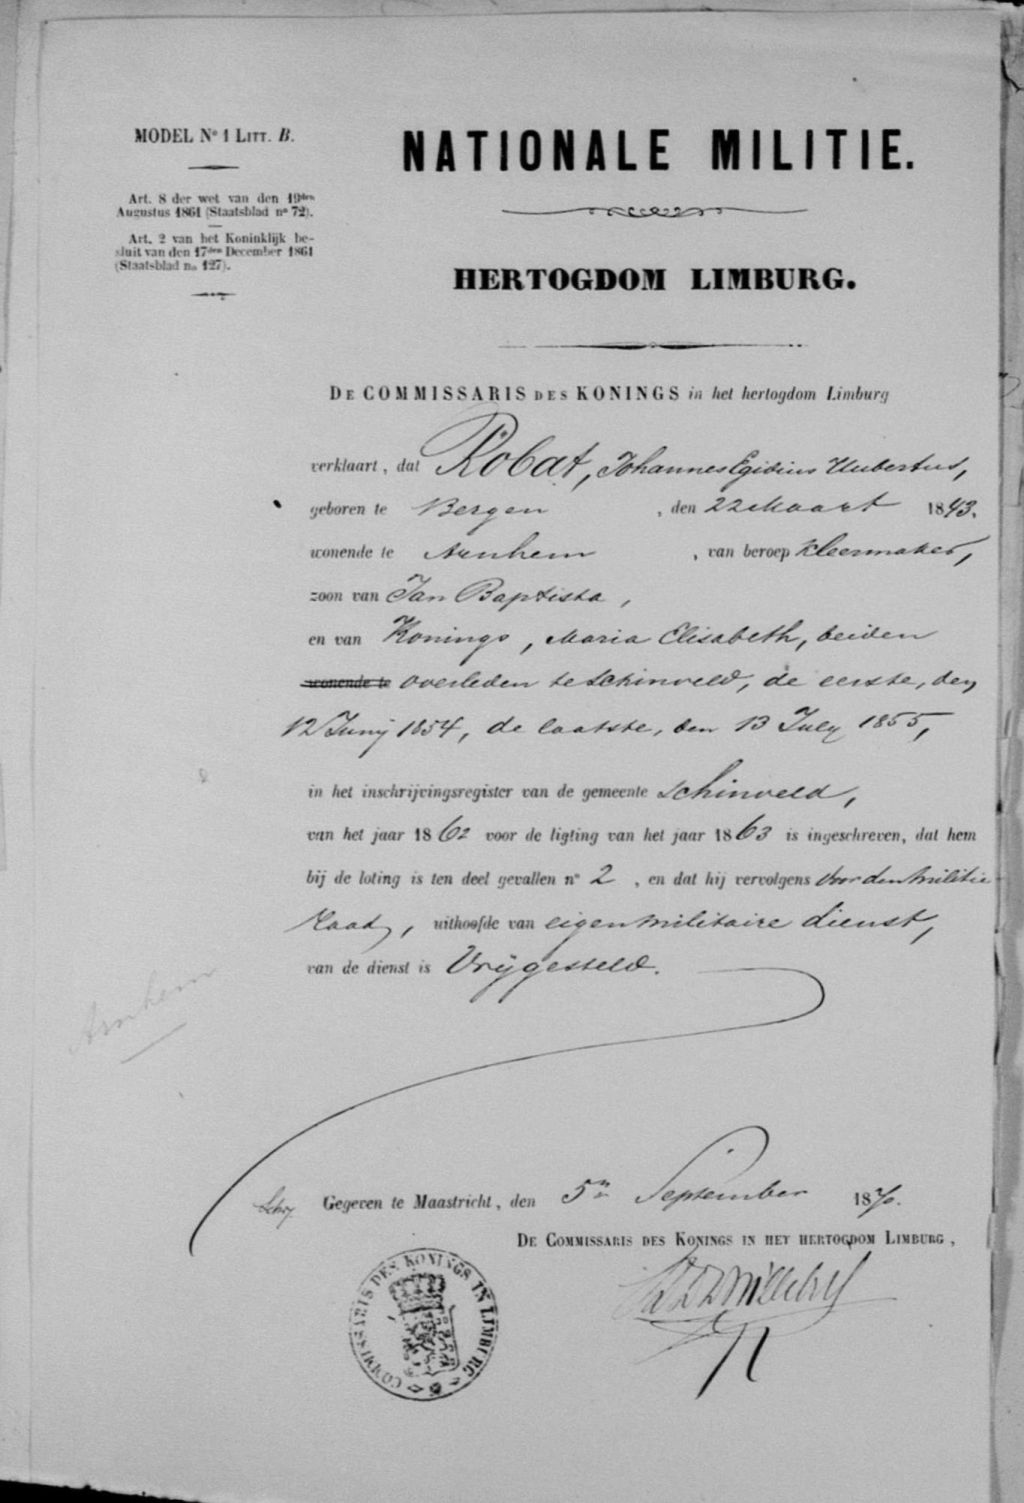 MODEL Nº 1 LITT. B.
Art. 8 der wet van den 19den
Augustus 1861 (Staatsblad nº 72).
Art. 2 van het Koninklijk be-
sluit van den 17den December 1861
(Staatsblad no 127).
NATIONALE MILITIE.
HERTOGDOM LIMBURG.
DE COMMISSARIS DES KONINGS in het hertogdom Limburg
verklaart, dat Robat, Johannes Egidius Hubertus,
geboren te Bergen, den 22 Maart 1843.
wonende te Arnhem, van beroep kleermaker,
zoon van Jan Baptista,
en van Konings, Maria Elisabeth, beiden
wonende te overleden te Schinveld, de eerste, den
12 Junij 1854, de laatste, den 13 July 1855,
in het inschrijvingsregister van de gemeente Schinveld,
van het jaar 1862 voor de ligting van het jaar 1863 is ingeschreven, dat hem
bij de loting is ten deel gevallen nº 2, en dat hij vervolgens door den Militie
raad, uithoofde van eigen militaire dienst,
van de dienst is Vrijgesteld.
Arnhem
Gegeven te Maastricht, den 5n September 1870.
DE COMMISSARIS DES KONINGS IN HET HERTOGDOM LIMBURG,
COMMISSARIS DES KONINGS IN LIMBURG